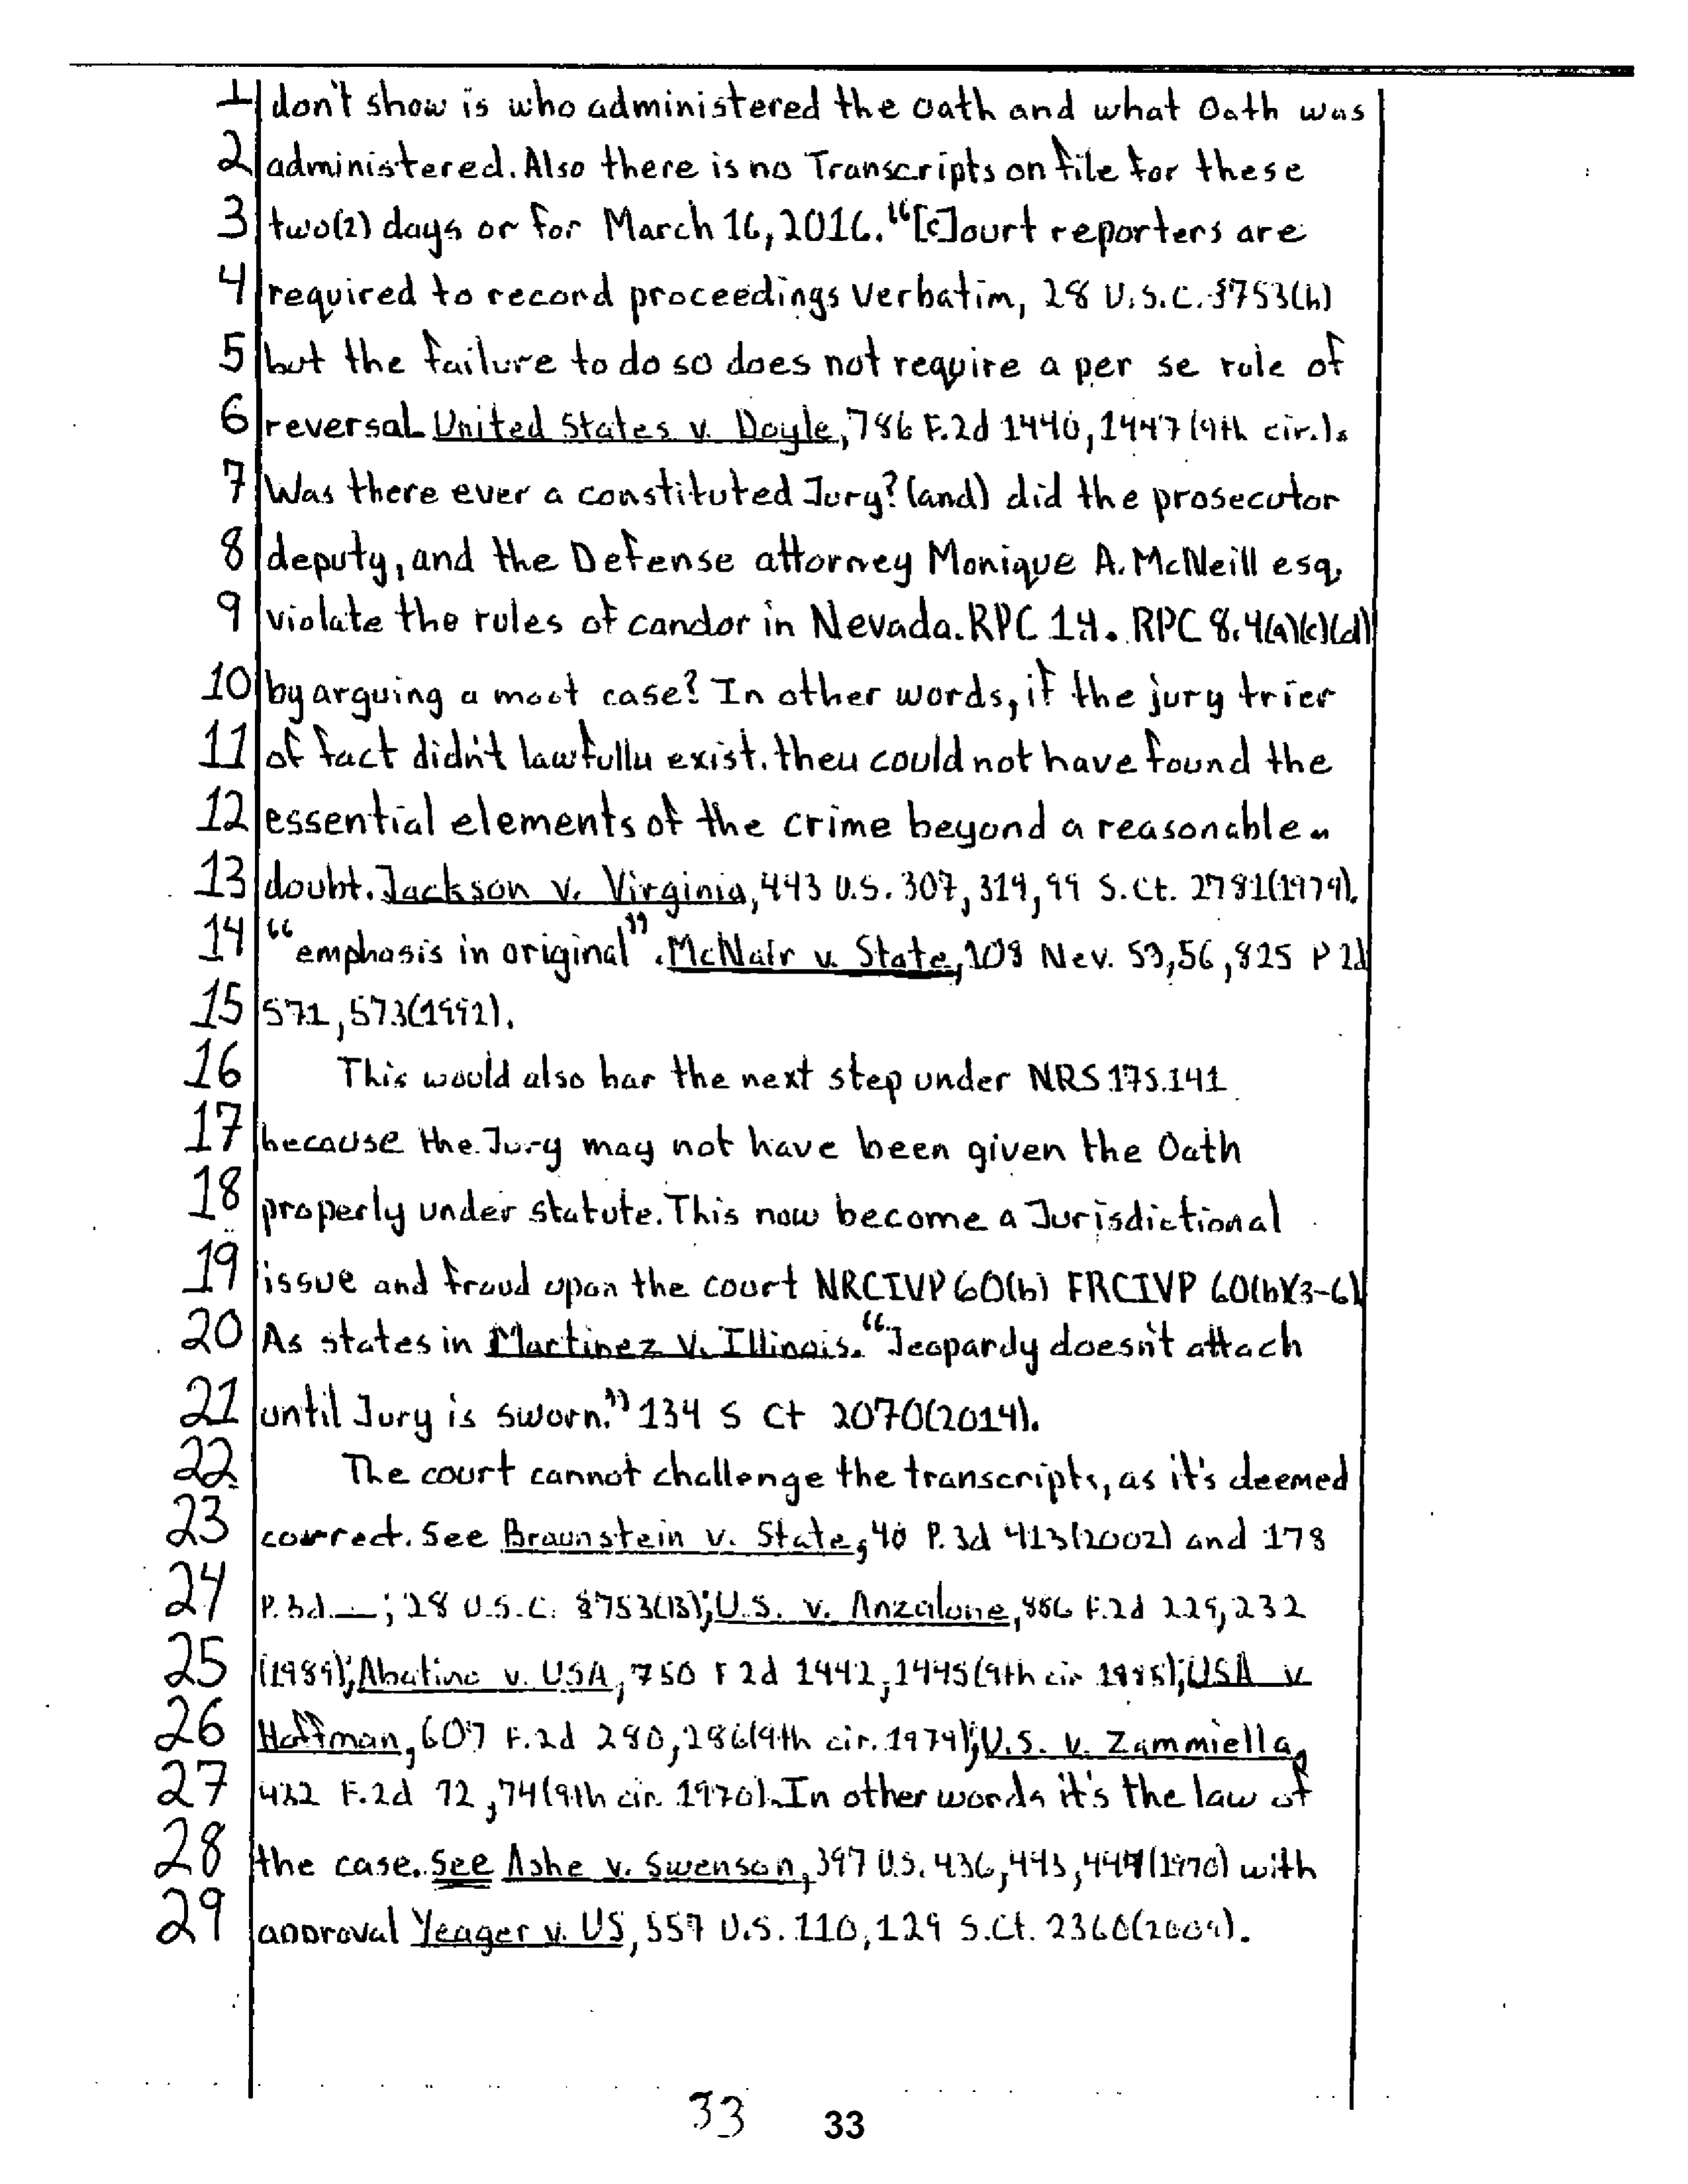 1 don't show is who administered the oath and what Oath was
2 administered. Also there is no Transcripts on file for these
3 two(2) days or for March 16, 2016. "[c]ourt reporters are
4 required to record proceedings verbatim, 28 U.S.C. §753(b)
5 but the failure to do so does not require a per se rule of
6 reversal United States v. Doyle, 786 F.2d 1440, 1447 (9th cir.).
7 Was there ever a constituted Jury? (and) did the prosecutor
8 deputy, and the Defense attorney Monique A. McNeill esq.
9 violate the rules of candor in Nevada. RPC 1.4. RPC 8.4(a)(c)(d)
10 by arguing a moot case? In other words, if the jury trier
11 of fact didn't lawfully exist. they could not have found the
12 essential elements of the crime beyond a reasonable
13 doubt. Jackson v. Virginia, 443 U.S. 307, 319, 99 S.Ct. 2781(1979).
14 "emphasis in original". McNair v. State, 108 Nev. 53, 56, 825 P 2d
15 571, 573(1992).
16 This would also bar the next step under NRS 175.141
17 because the Jury may not have been given the Oath
18 properly under statute. This now become a Jurisdictional
19 issue and fraud upon the court NRCIVP 60(b) FRCIVP 60(b)(3-6)
20 As states in Martinez v. Illinois. "Jeopardy doesn't attach
21 until Jury is sworn." 134 S Ct 2070(2014).
22 The court cannot challenge the transcripts, as it's deemed
23 correct. See Braunstein v. State, 40 P.3d 413(2002) and 178
24 P.3d __; 28 U.S.C. §753(B); U.S. v. Anzalone, 886 F.2d 229, 232
25 (1989); Abatino v. USA, 750 F 2d 1442, 1445(9th cir 1985); USA v.
26 Hoffman, 607 F.2d 280, 286(9th cir. 1979); U.S. v. Zammiella,
27 432 F.2d 72, 74(9th cir. 1970). In other words it's the law of
28 the case. See Ashe v. Swenson, 397 U.S. 436, 443, 444(1970) with
29 approval Yeager v. US, 557 U.S. 110, 129 S.Ct. 2360(2009).
33 33